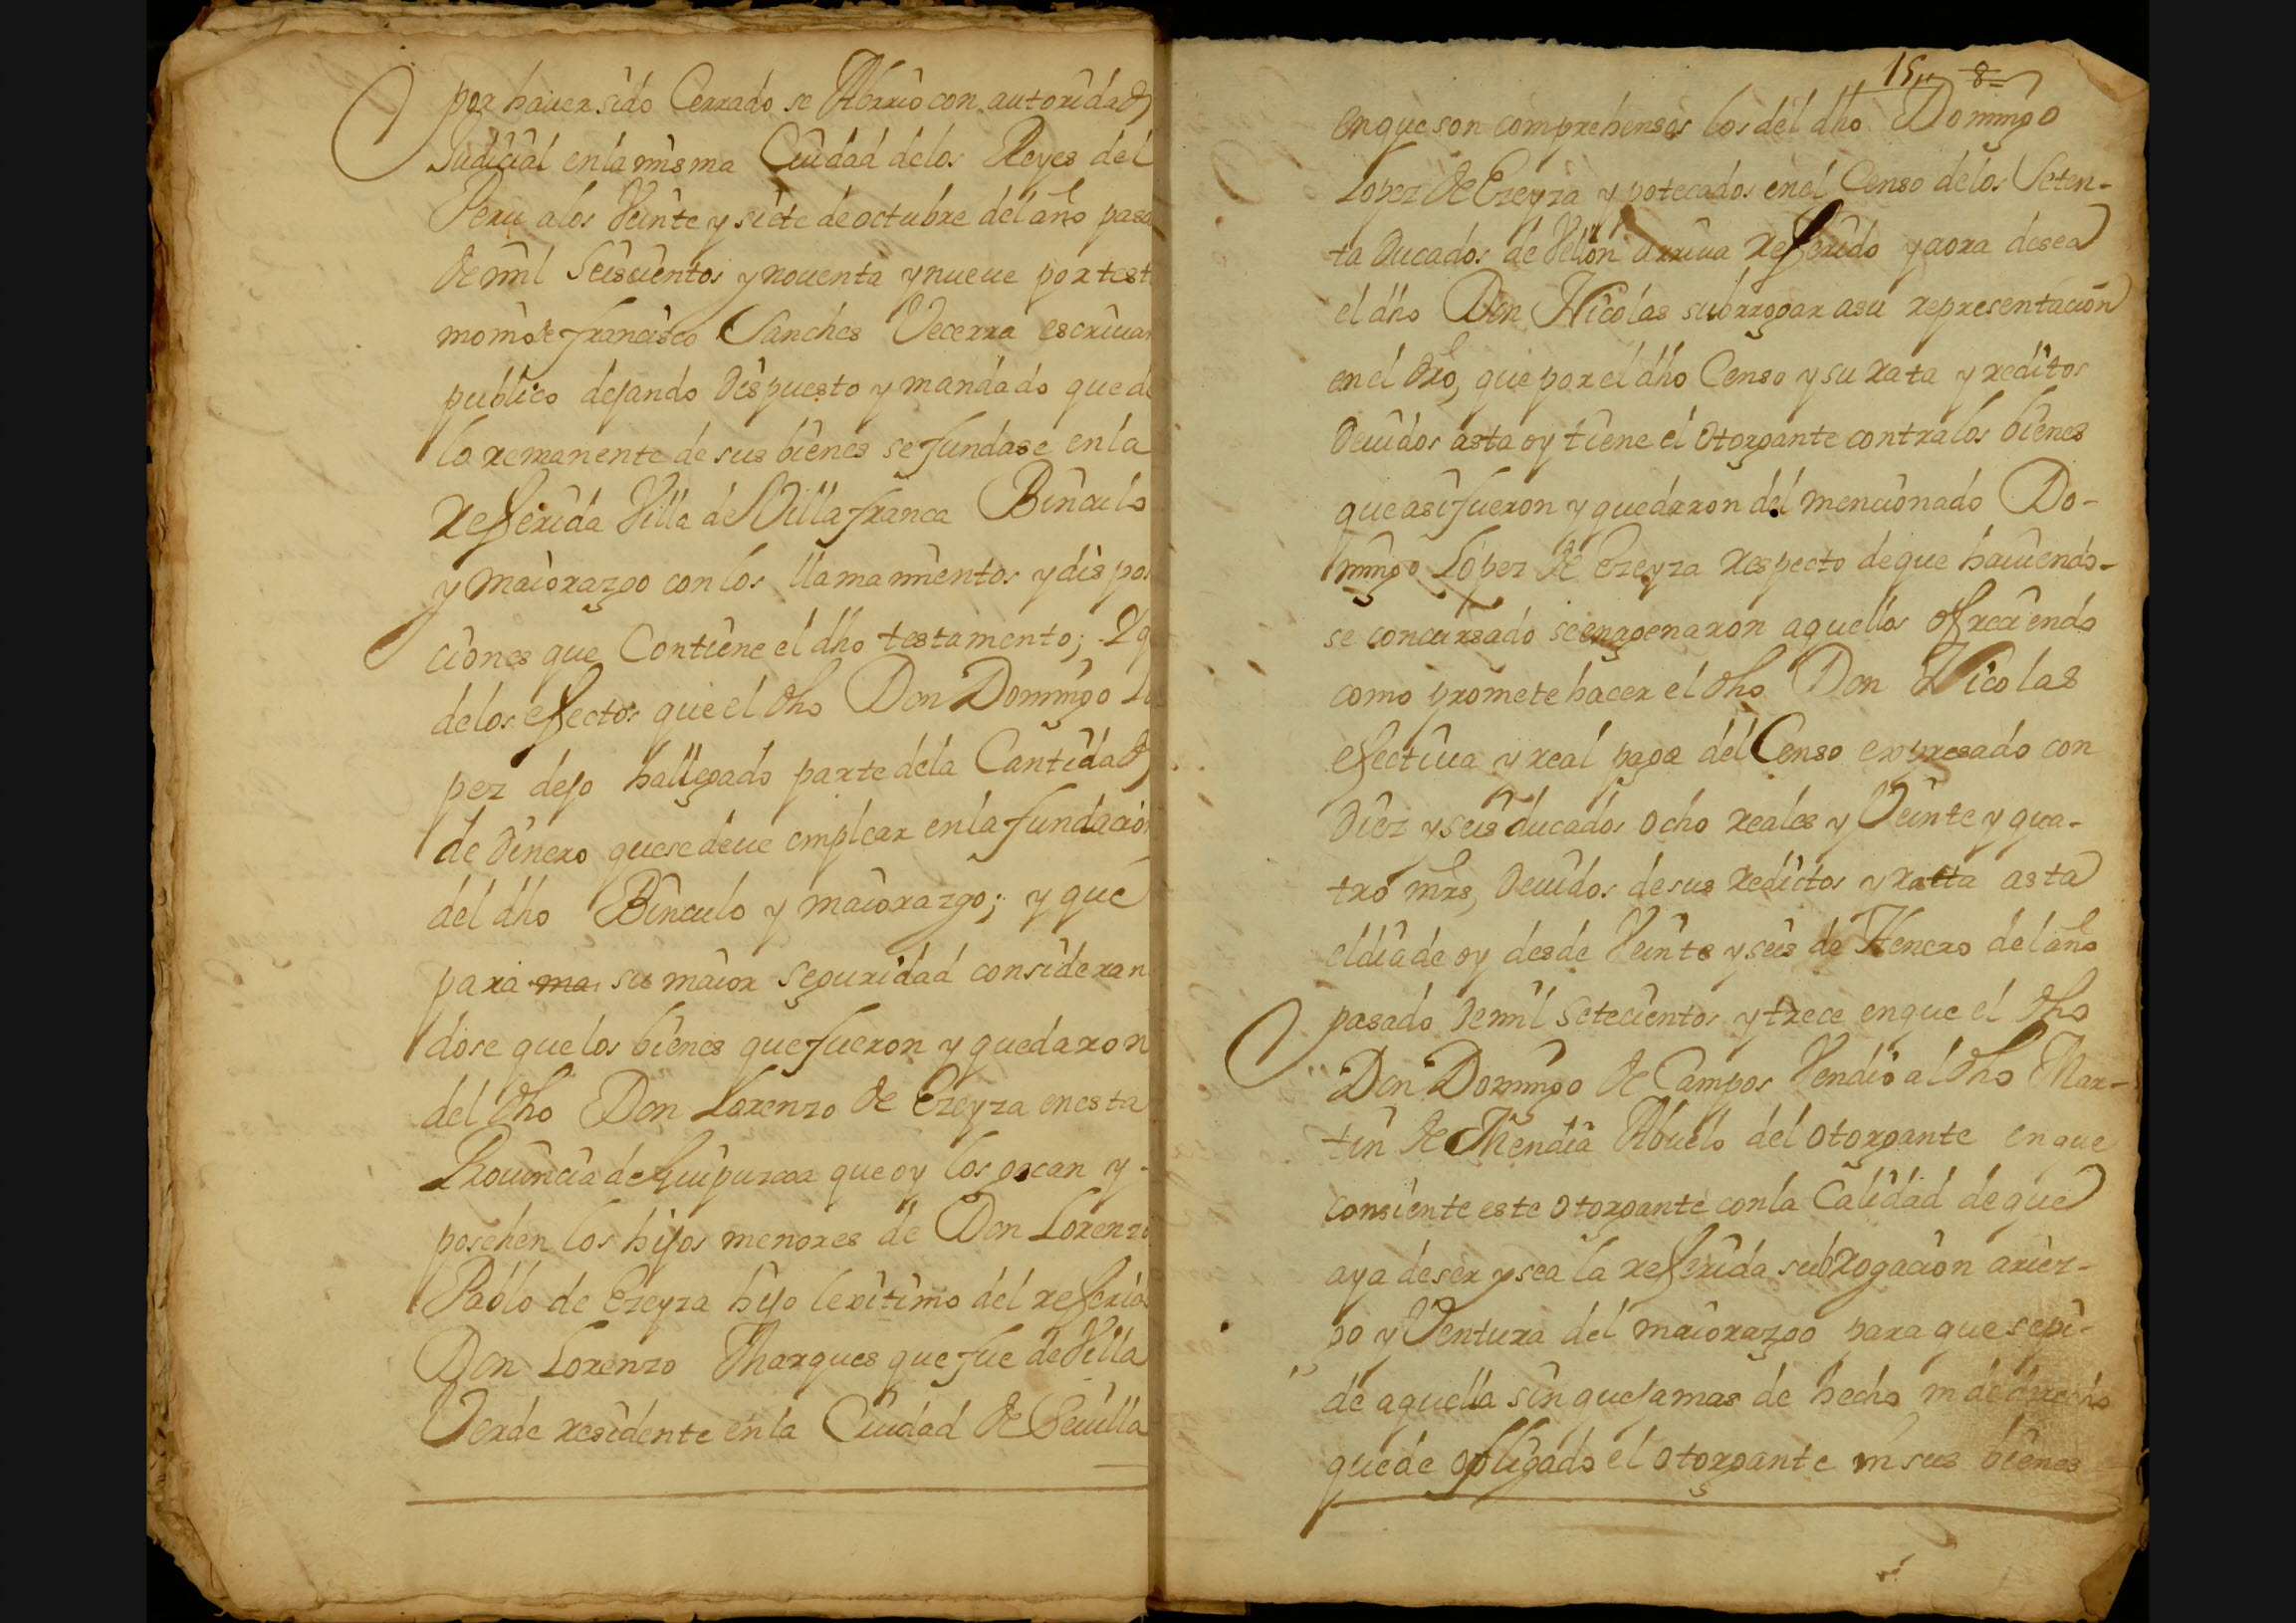 por hauer sido Cerrado se Abrrio con autoridad
Judicial enla misma Ciudad delos Reyes del
Peru alos Veinte y siete de octubre del año pasa
de mil Seiscientos y nouenta y nueue por testi
monio de francisco Sanches Vecerra escriuan
publico dejando Dispuesto y mandado que de
lo remanente de sus bienes se fundase enla
Referida Villa de Villafranca Binculo
y maiorazgo con los llamamientos y dispos
ciones que Contiene el dho testamento; Y q
delos efectos que el dho Don Domingo Lo
pez dejo hallegado parte dela Cantidad
de dinero quese deue emplear enla fundacion
del dho Binculo y maiorazgo; y que
para ma su maior seguridad consideran
dose que los bienes que fueron y quedaron
del dho Don Lorenzo de Ezeyza en esta
Prouincia de Guipuzcoa que oy los gocan y
posehen los hijos menores de Don Lorenzo
Pablo de Ezeyza hijo lexitimo del referido
Don Lorenzo Marques que fue de Villa
Verde residente en la Ciudad de Seuilla
15 8
en que son comprehensos los del dho Domingo
Lopez de Ezeyza ypotecados en el Censo delos Seten-
ta Ducados de Vellon arriua Referido y aora desea
el dho Don Nicolas subrrogar asu representacion
en el dro, que por el dho Censo y su rata y reditos
Deuidos asta oy tiene el otorgante contra los bienes
que asi fueron y quedaron del mencionado Do-
mingo López de Ezeyza Respecto de que hauiendo-
se concursado se enagenaron aquellos ofreciendo
como promete hacer el dho Don Nicolas
efectiua y real paga del Censo expresado con
Diez y seis ducados ocho reales y Veinte y qua-
tro mrs, Deuidos de sus Redictos y ratta asta
el dia de oy desde Veinte y seis de Henero del año
pasado de mil setecientos y trece en que el dho
Don Domingo de Campos Vendio al dho Mar-
tin de Mendia Abuelo del otorgante en que
consiente este otorgante con la Calidad de que
aya de ser y sea la referida subrogacion arriez-
go y Ventura del maiorazgo para que se pi-
de aquella sin que jamas de hecho ni de drecho
quede obligado el otorgante ni sus bienes